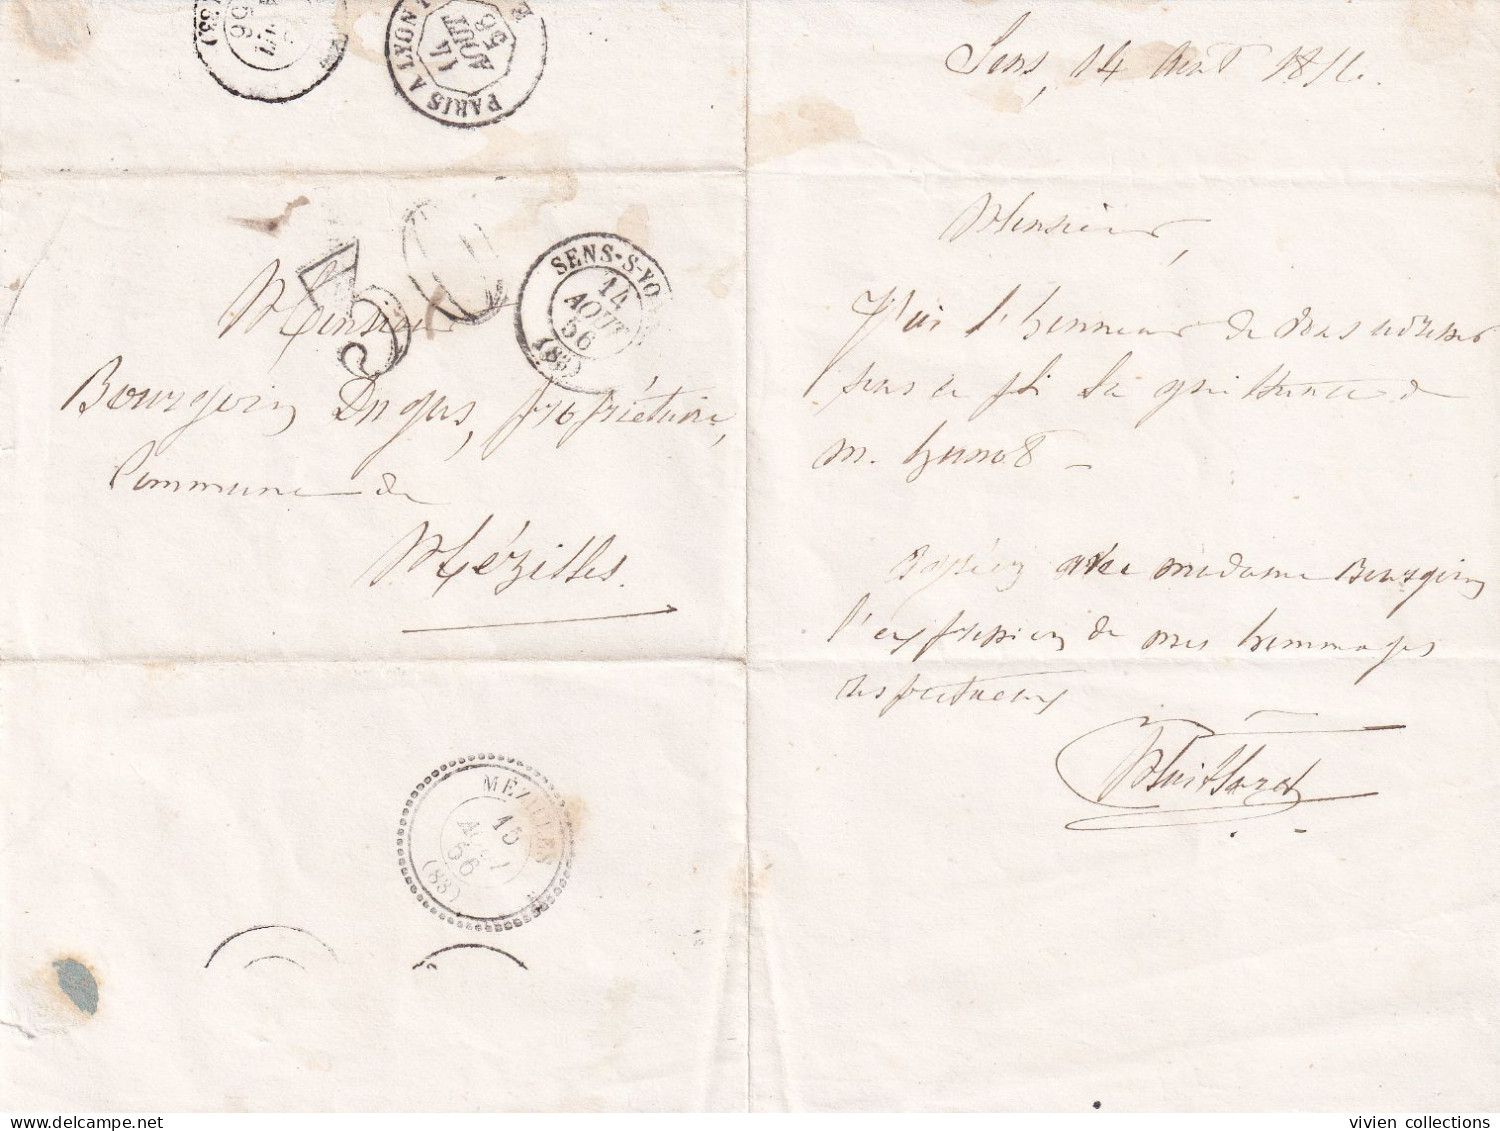 PARIS A LYON
14
AOUT
56
(83)
30
SENS-S-YO
14
AOUT
56
(83)
Monsieur
Bourgoin Dugas, propriétaire,
Commune de
Mézilles.
MÉZILLES
15
AOUT
56
(83)
Sens, 14 Août 1856.
Monsieur,
J'ai l'honneur de vous adresser
sous ce pli la quittance de
M. hunot –
Agréez avec madame Bourgoin
l'expression de mes hommages
respectueux
vivien collections